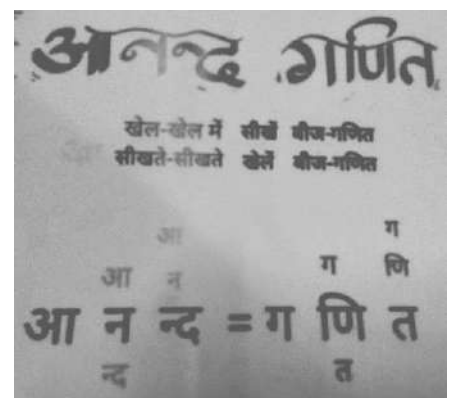 आनन्द गणित
खेल-खेल में सीखें बीज-गणित
सीखते-सीखते खेलें बीज-गणित
आ ग
आ न ग णि
आ न न्द = ग णि त
न्द त